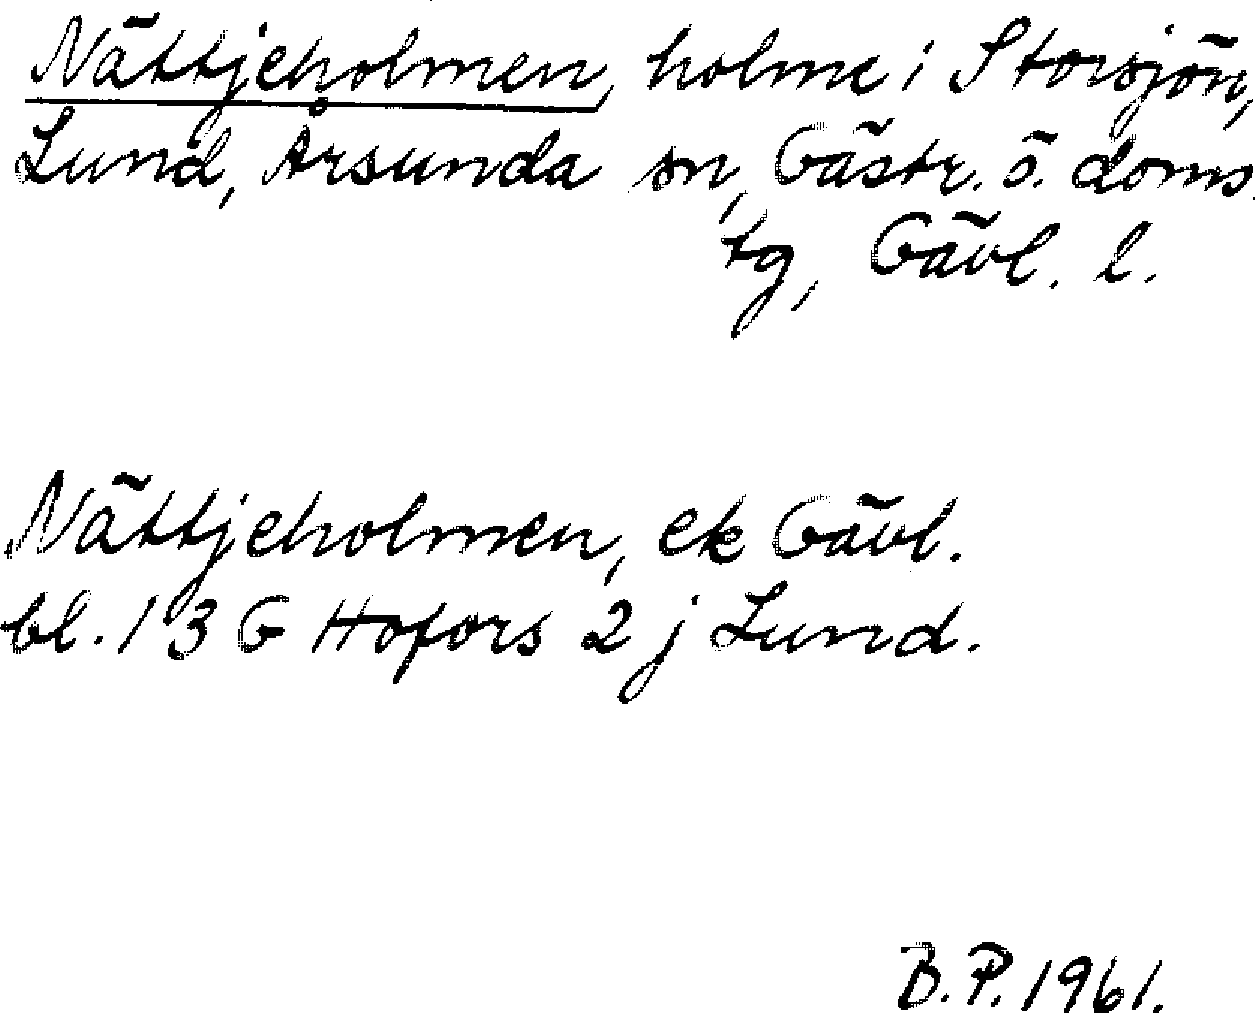 Nättjeholmen, holme i Storsjön,
Lund, Årsunda sn, Gästr. ö. doms.
tg, Gävl. l.
Nättjeholmen, ek Gävl.
bl. 13 G Hofors 2 j Lund.
B.P. 1961.